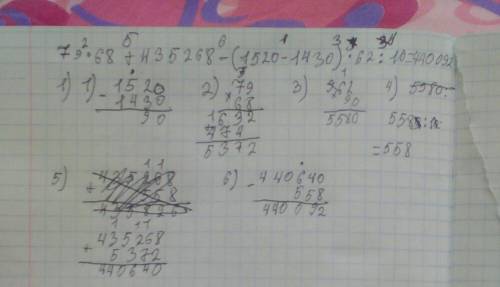 2 5 6 1 3 4
79·68+435268-(1520-1430)·62:10=440092
1) 1) -1520
1430
90
2) 79
×68
1632
474
5372
3) 62
90
5580
4) 5580:
558:10
=558
5)
1 11
+435268
5372
440640
6) -440640
558
440092